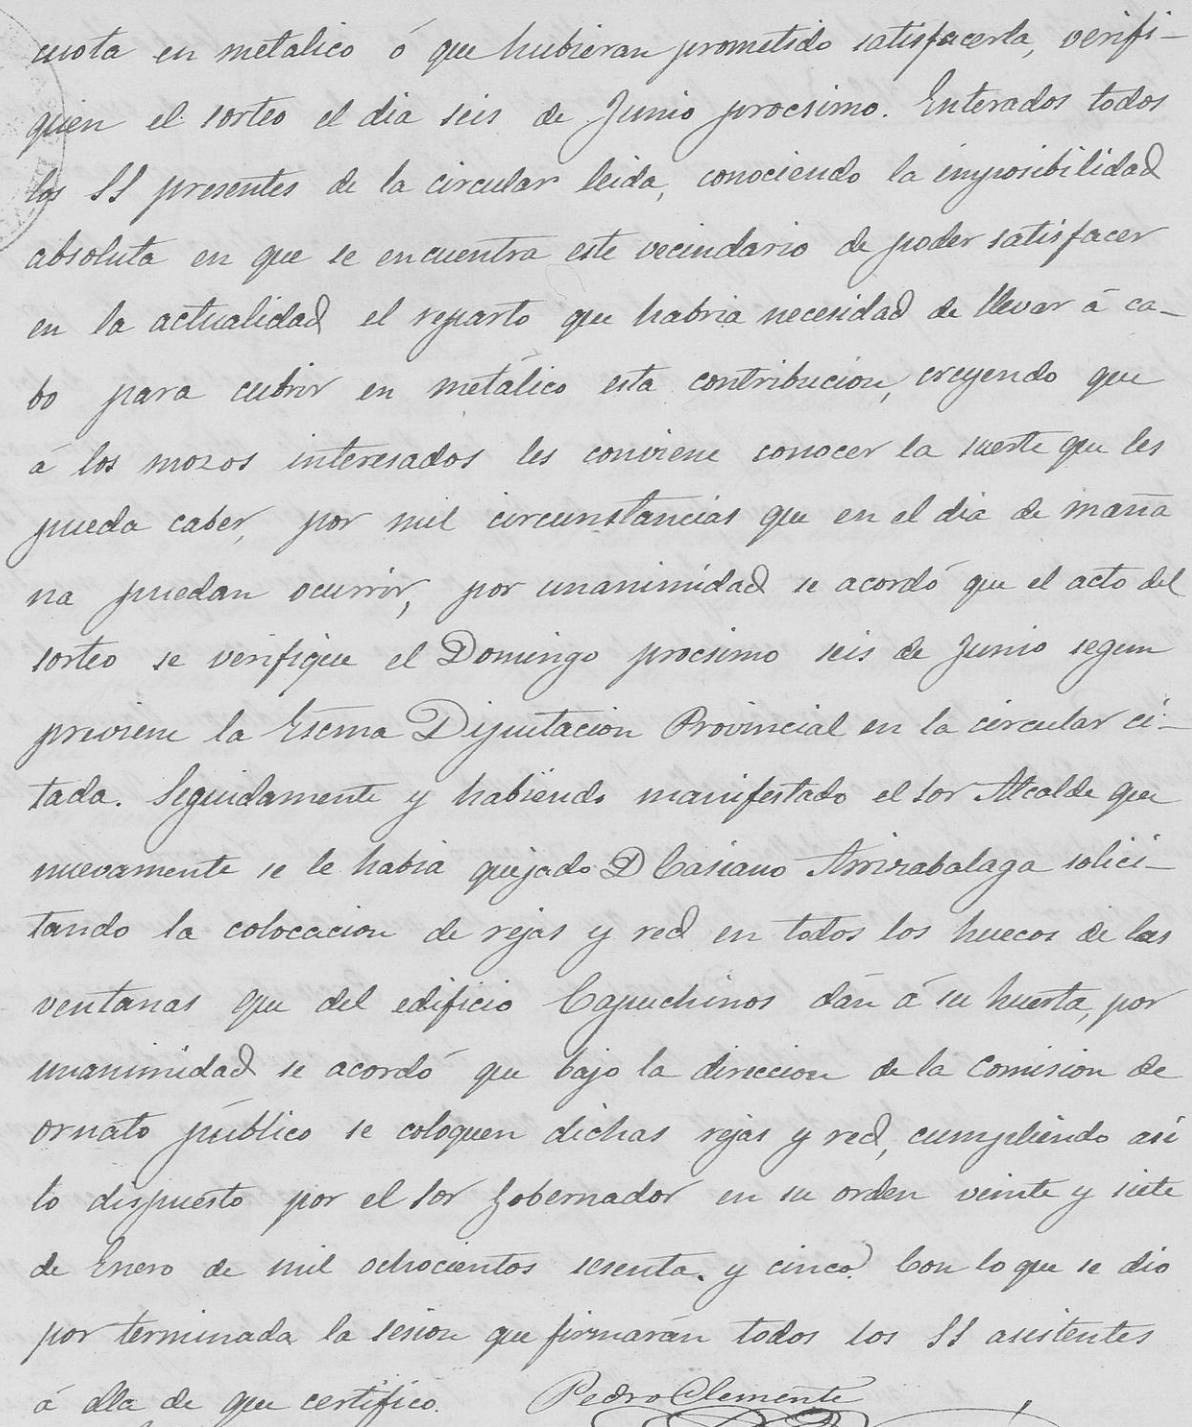 cuota en metalico ó que hubieran prometido satisfacerla, verifi-
quen el sorteo el dia seis de Junio procsimo. Enterados todos
los SS presentes de la circular leida, conociendo la imposibilidad
absoluta en que se encuentra este vecindario de poder satisfacer
en la actualidad el reparto que habria necesidad de llevar á ca-
bo para cubrir en metálico esta contribucion, creyendo que
á los mozos interesados les conviene conocer la suerte que les
pueda caber, por mil circunstancias que en el dia de maña
na puedan ocurrir, por unanimidad se acordó que el acto del
sorteo se verifique el Domingo procsimo seis de Junio segun
previene la Escma Diputacion Provincial en la circular ci-
tada. Seguidamente y habiendo manifestado el Sor Alcalde que
nuevamente se le habia quejado D Casiano Arrizabalaga solici-
tando la colocacion de rejas y red en todos los huecos de las
ventanas que del edificio Capuchinos dán á su huerta, por
unanimidad se acordó que bajo la direccion de la Comision de
ornato público se coloquen dichas rejas y red, cumpliendo asi
lo dispuesto por el Sor Gobernador en su orden veinte y siete
de Enero de mil ochocientos sesenta. y cinco. Con lo que se dio
por terminada la sesion que firmarán todos los SS asistentes
á ella de que certifico. Pedro Clemente